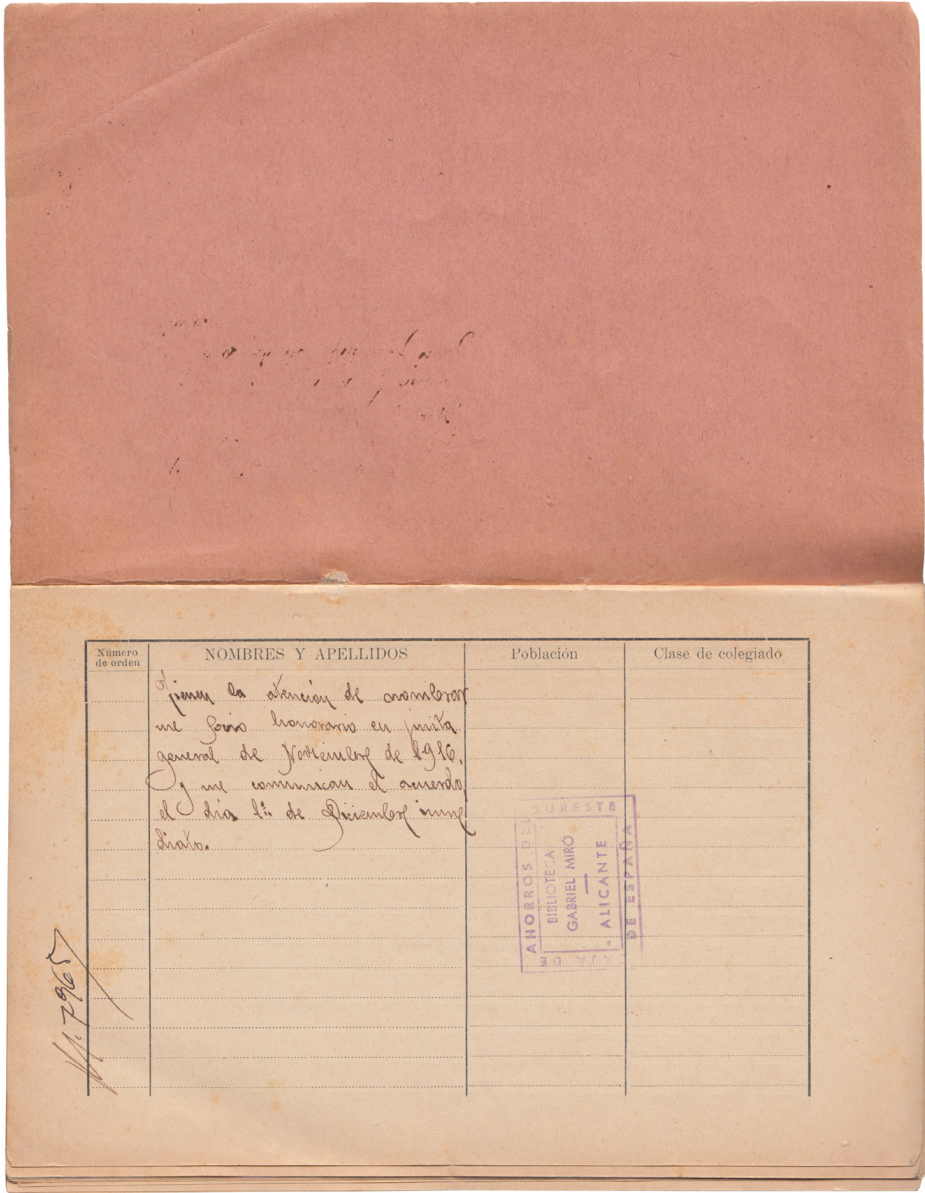 Número de orden
NOMBRES Y APELLIDOS
Población
Clase de colegiado
Tienen la atención de nombrar
me socio honorario en junta
general de Noviembre de 1916.
y me comunican el acuerdo
el día 1º de Diciembre inme
diato.
CAJA DE AHORROS DEL SURESTE DE ESPAÑA
BIBLIOTECA
GABRIEL MIRÓ
ALICANTE
7965